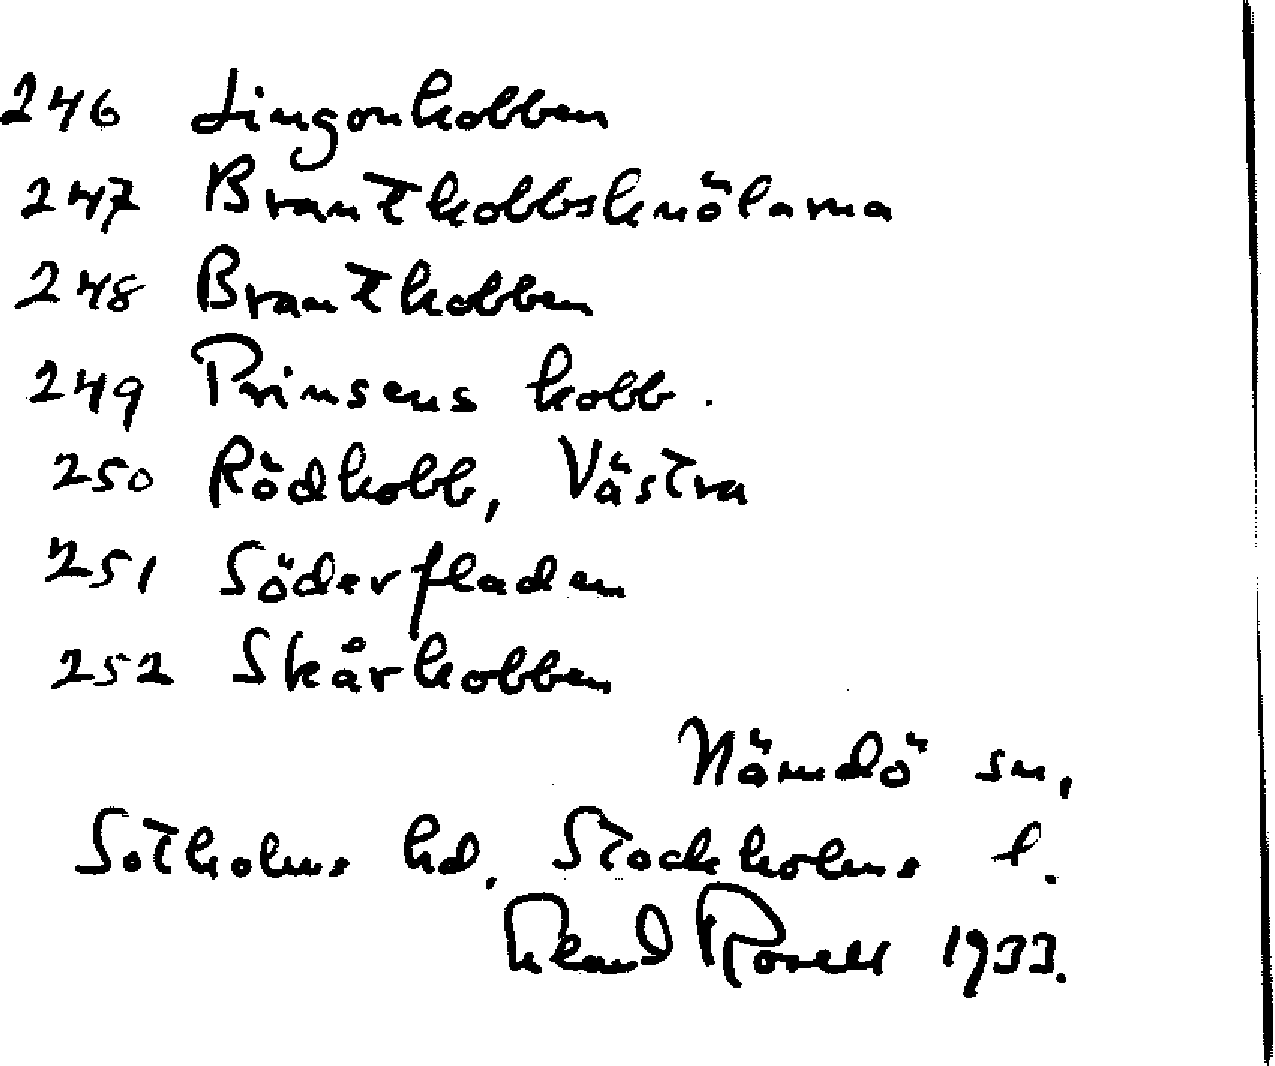 246 Lingonkobben
247 Brantkobbsknölarna
248 Brantkobben
249 Prinsens kobb.
250 Rödkobb, Västra
251 Söderfladen
252 Skårkobben
Nämdö sn,
Sotholms hd. Stockholms l.
1933.